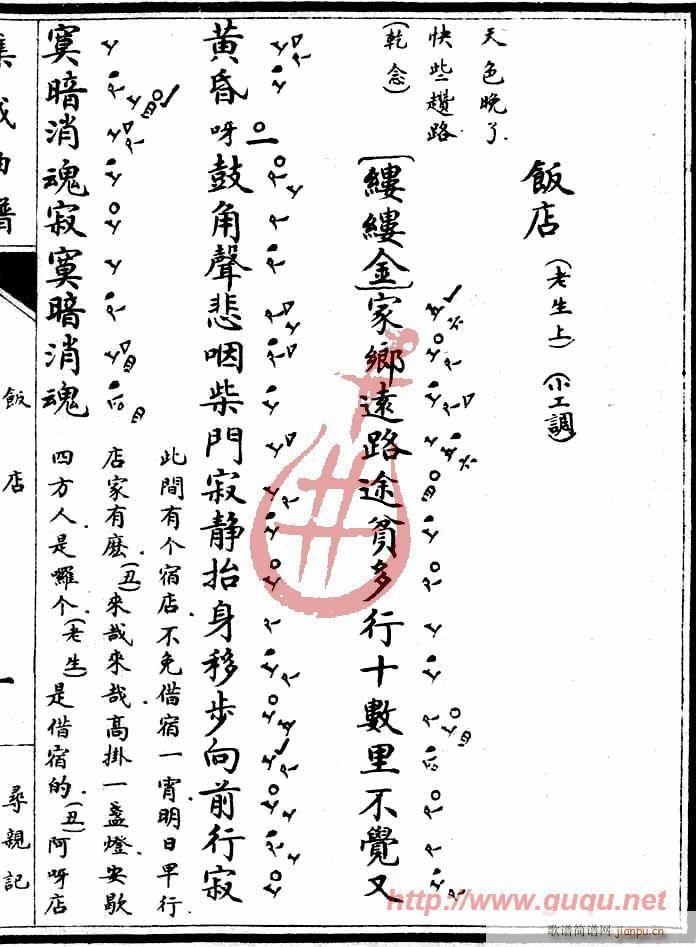 飯店 (老生上) (小工調)
天色晚了
快些趲路
(乾念)
[縷縷金]家鄉遠路途貧多行十數里不覺又
黃昏呀鼓角聲悲咽柴門寂靜抬身移步向前行寂
寞暗消魂寂寞暗消魂
此間有个宿店.不免借宿一宵明日早行.
店家有麽.(丑)來哉來哉高掛一盞燈.安歇
四方人.是囉个.(老生)是借宿的.(丑)阿呀店
集成曲譜
飯店
一
尋親記
http://www.guqu.net
歌谱简谱网
jianpu.cn